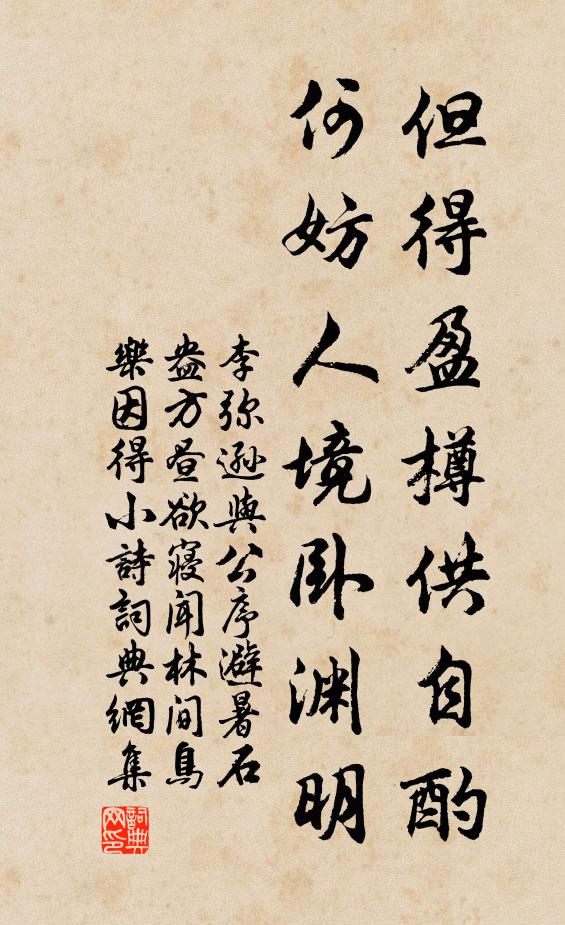 但得盈樽供自酌
何妨人境卧渊明
李弥遜與公序避暑石
盎方昼欲寝闻林间鳥
樂因得小詩詞典網集
詞典网印